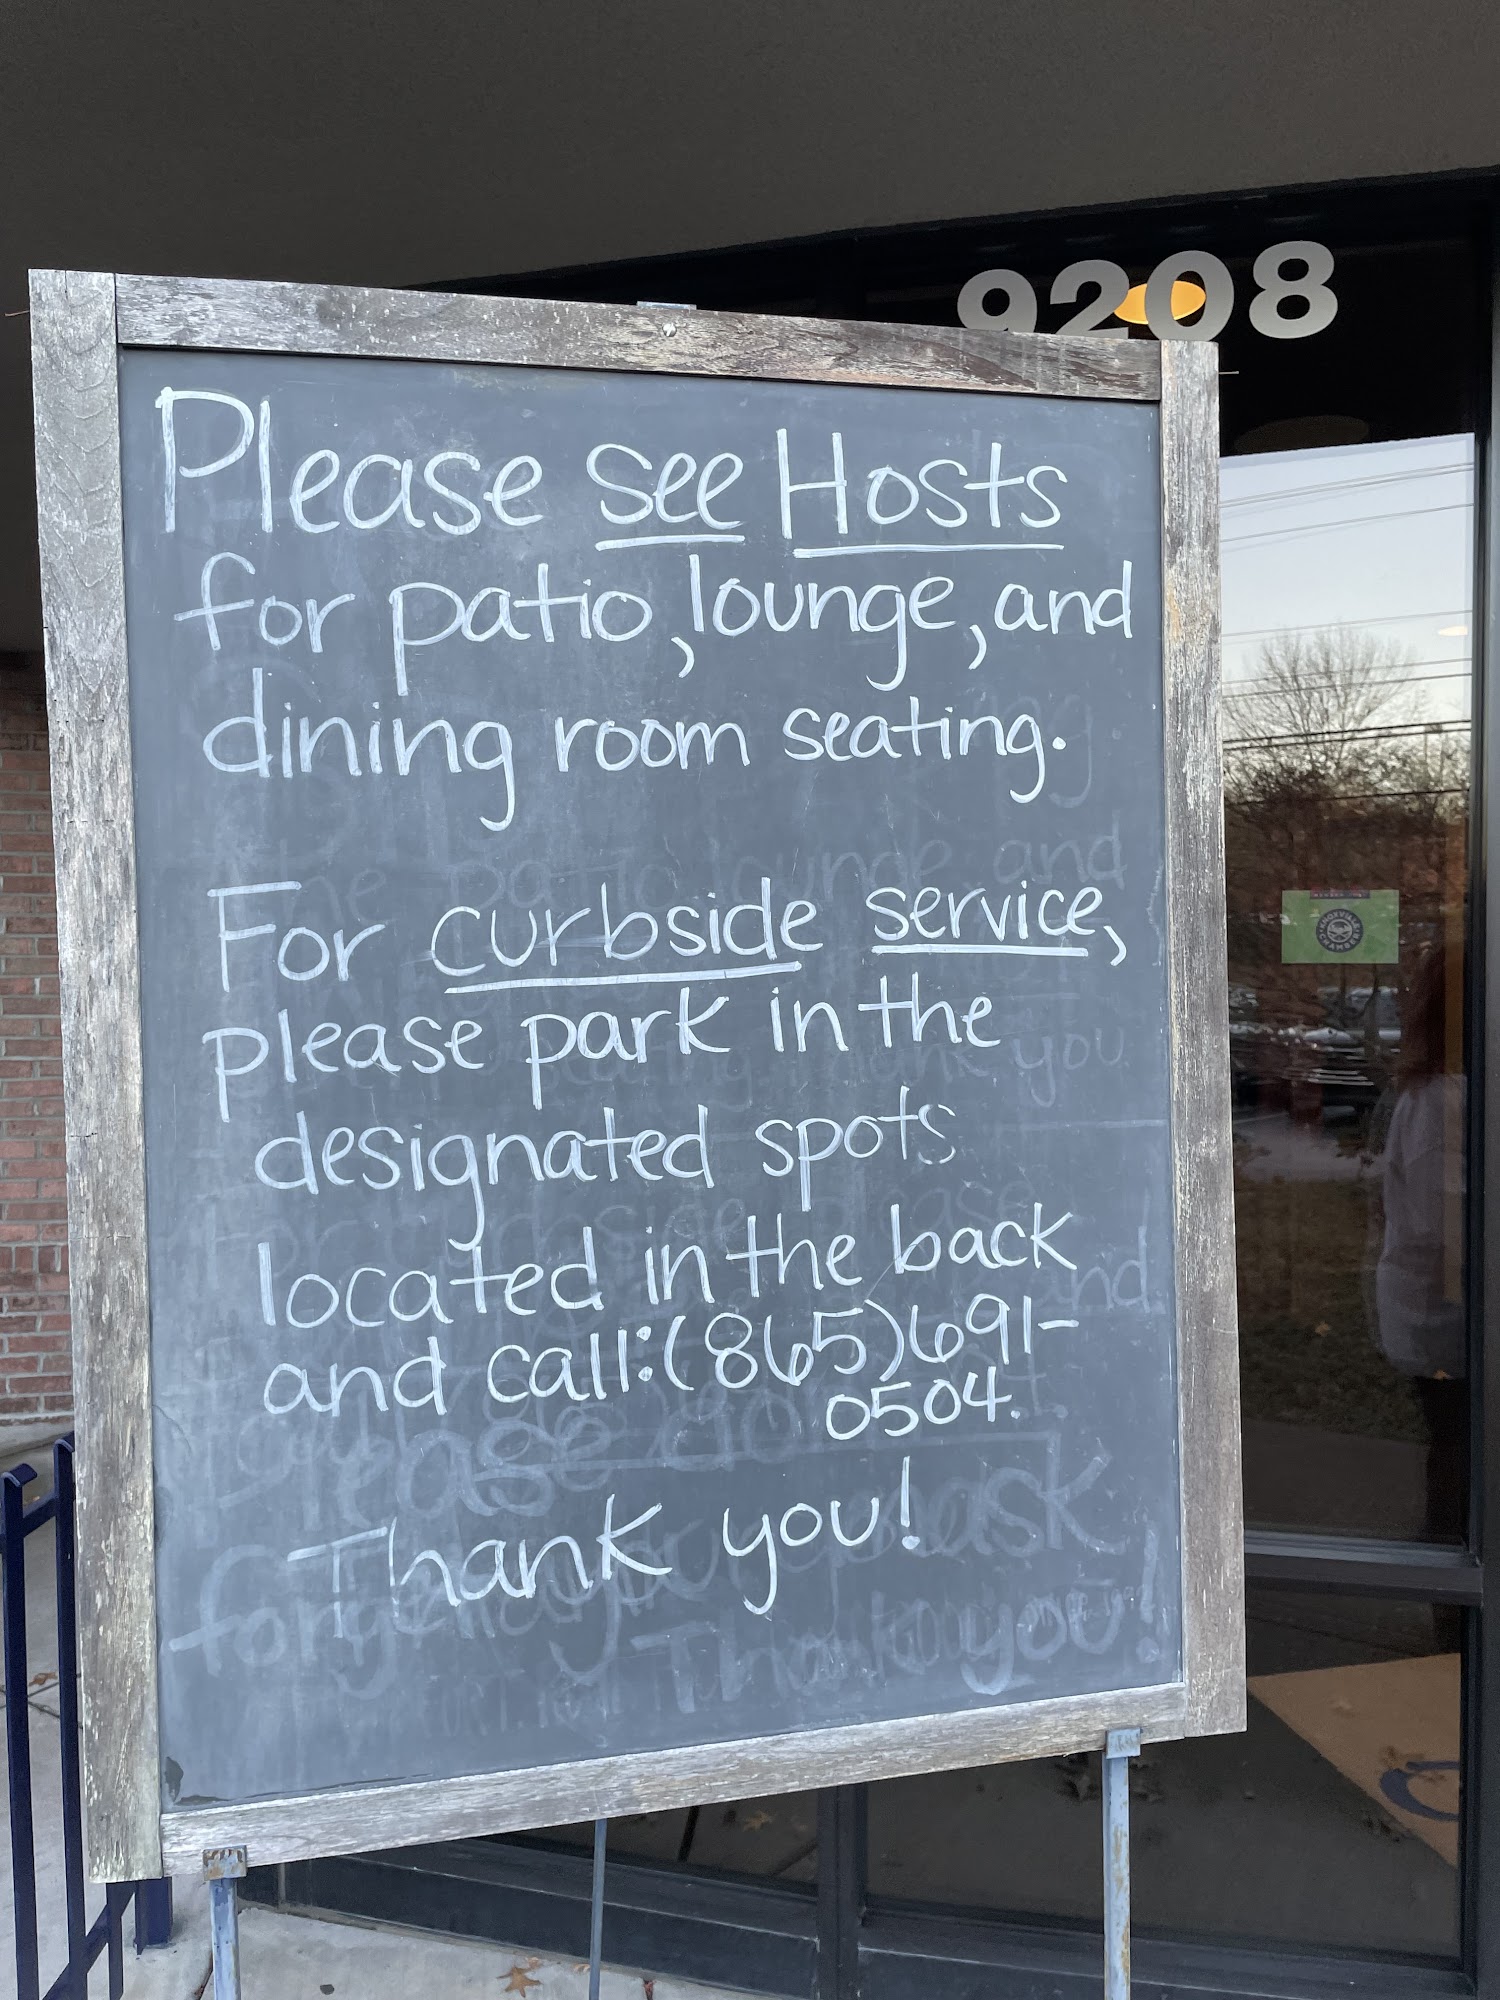 9208
Please see Hosts
for patio, lounge, and
dining room seating.
For curbside service,
please park in the
designated spots
located in the back
and call: (865)691-
0504.
Thank you!